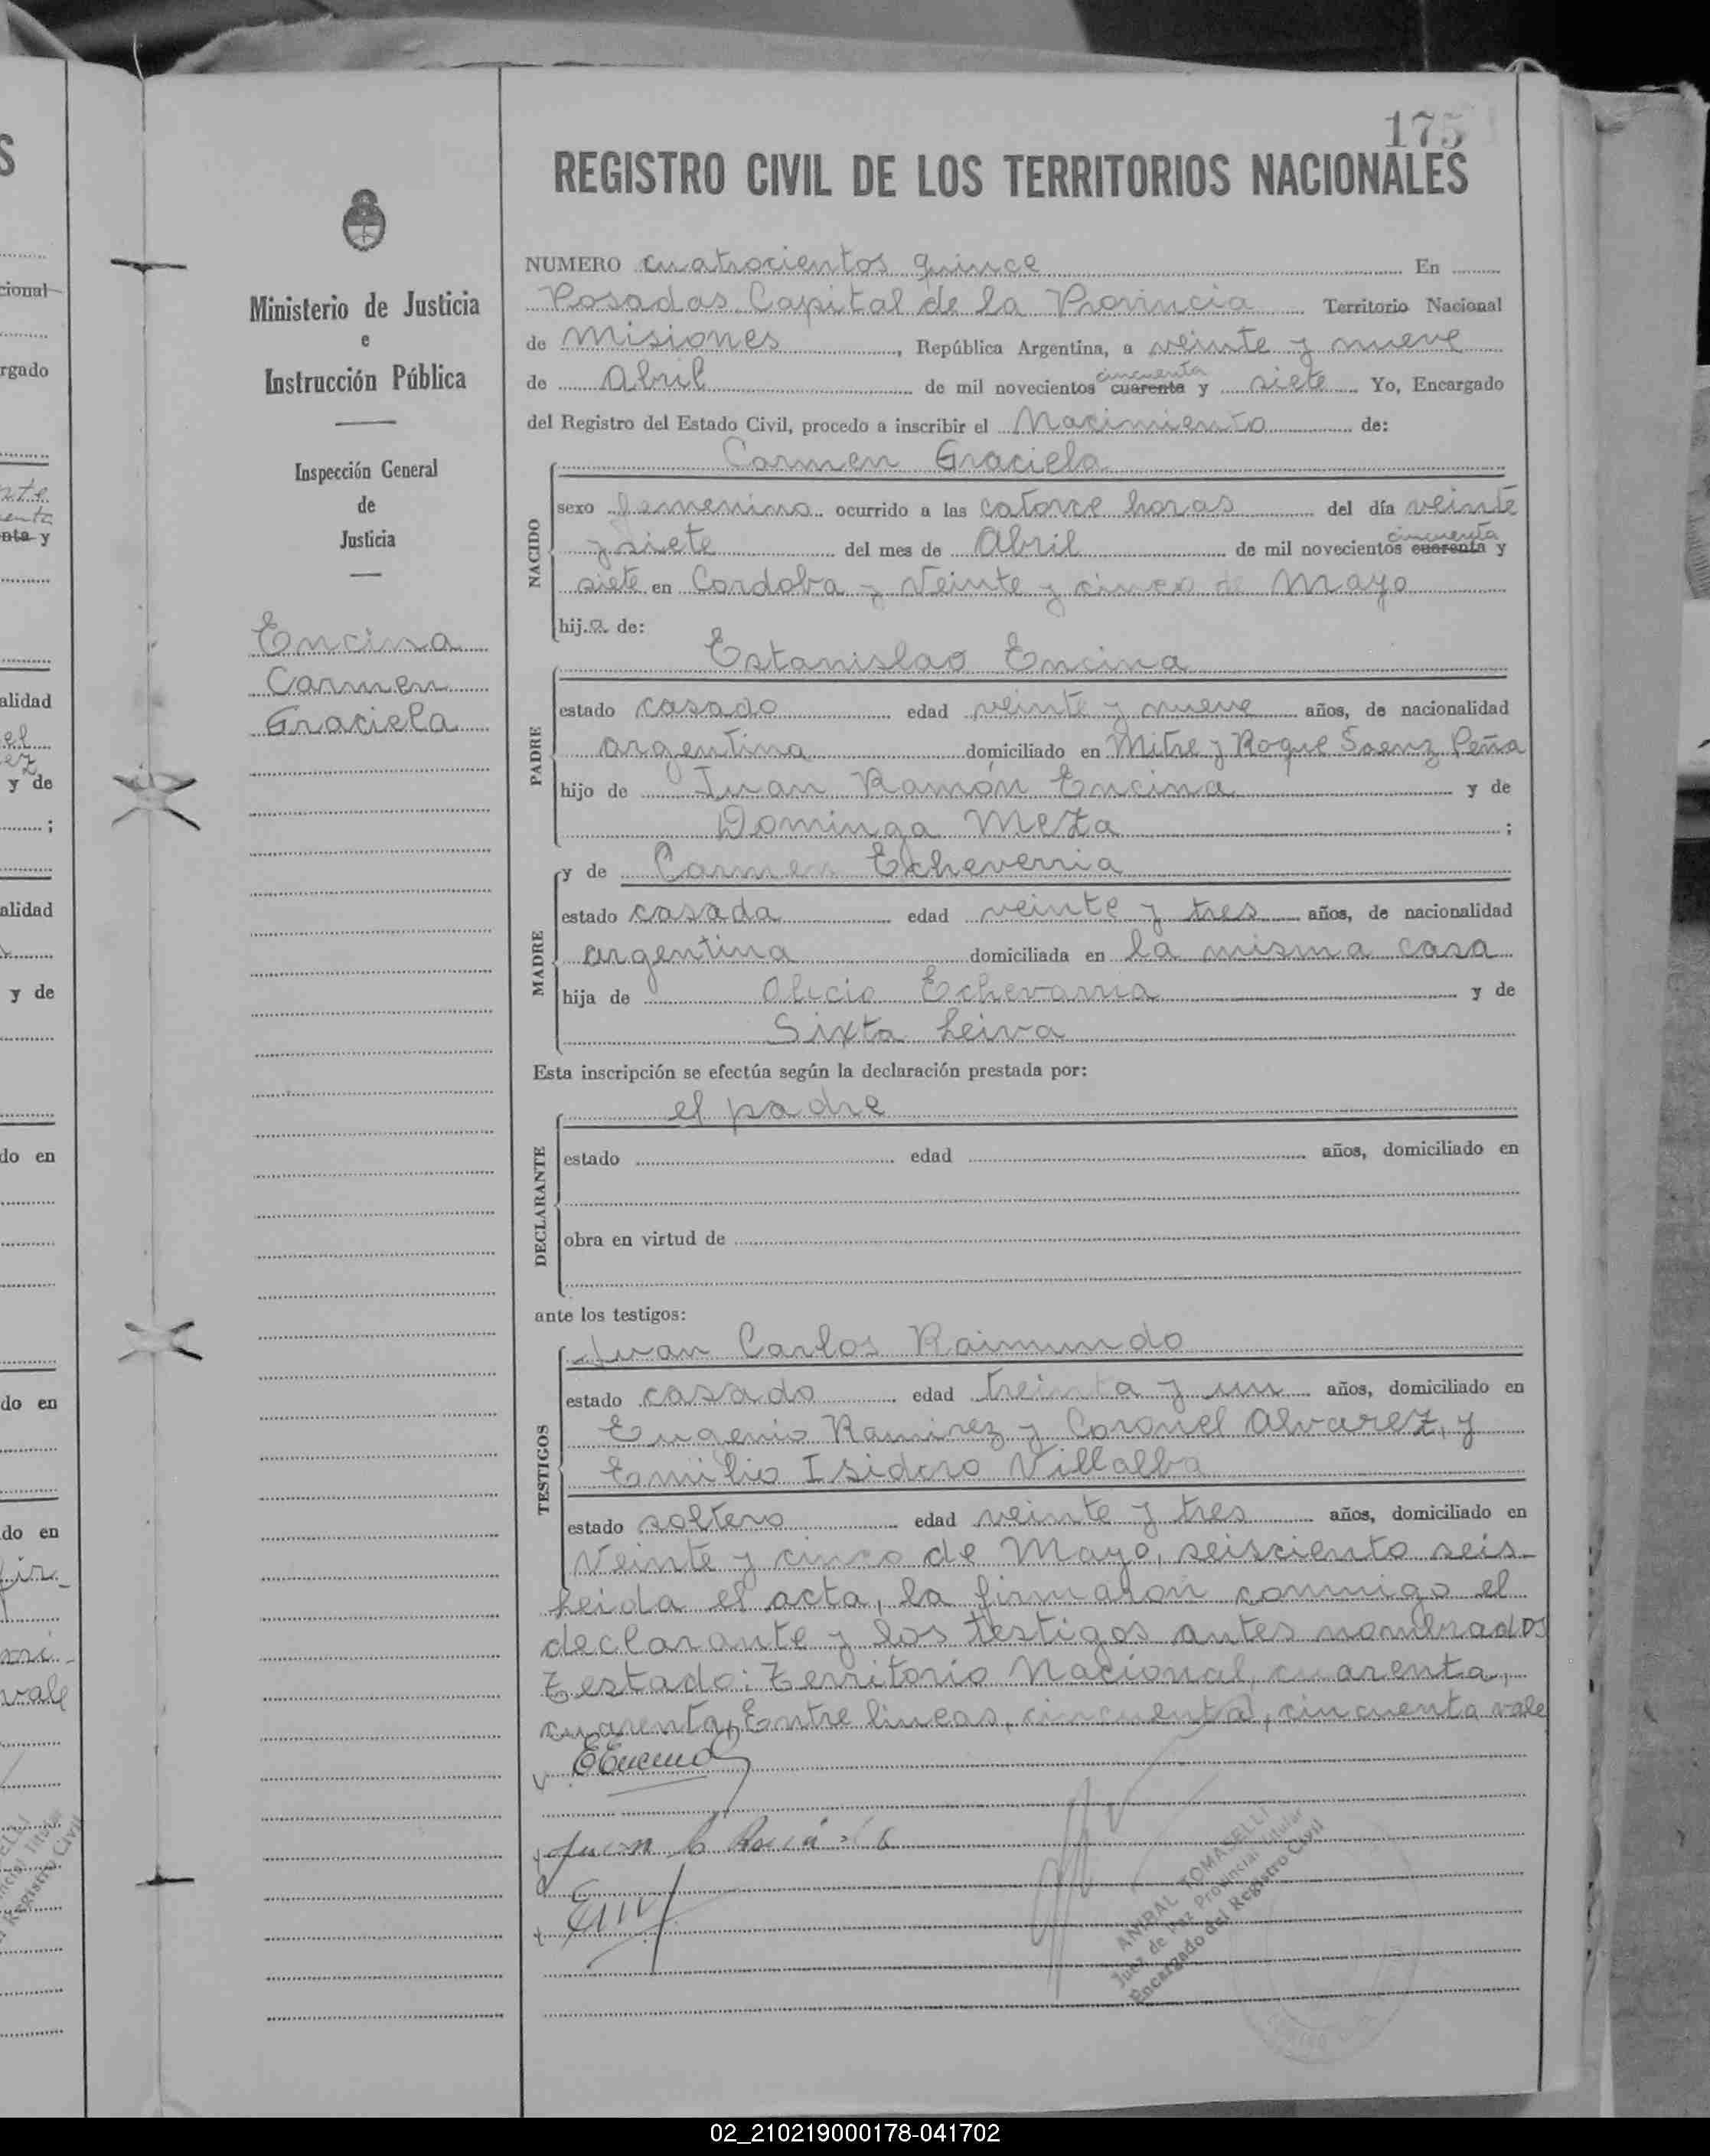 175
REGISTRO CIVIL DE LOS TERRITORIOS NACIONALES
Ministerio de Justicia
e
Instrucción Pública
Inspección General
de
Justicia
Encina
Carmen
Graciela
NUMERO cuatrocientos quince En
Posadas Capital de la Provincia Territorio Nacional
de Misiones, República Argentina, a veinte y nueve
de Abril de mil novecientos cuarenta cincuenta y siete Yo, Encargado
del Registro del Estado Civil, procedo a inscribir el Nacimiento de:
Carmen Graciela
NACIDO
sexo femenino ocurrido a las catorce horas del día veinte
y siete del mes de Abril de mil novecientos cuarenta cincuenta y
siete en Cordoba y Veinte y cinco de Mayo
hija de:
Estanislao Encina
PADRE
estado casado edad veinte y nueve años, de nacionalidad
argentina domiciliado en Mitre y Roque Saenz Peña
hijo de Juan Ramón Encina y de
Dominga Meza ;
y de Carmen Echeverria
MADRE
estado casada edad veinte y tres años, de nacionalidad
argentina domiciliada en la misma casa
hija de Alicio Echevarria y de
Sixta Leiva
Esta inscripción se efectúa según la declaración prestada por:
el padre
DECLARANTE
estado edad años, domiciliado en
obra en virtud de
ante los testigos:
Juan Carlos Raimundo
TESTIGOS
estado casado edad treinta y un años, domiciliado en
Eugenio Ramirez y Coronel Alvarez, y
Emilio Isidoro Villalba
estado soltero edad veinte y tres años, domiciliado en
Veinte y cinco de Mayo, seisciento seis-
Leida el acta, la firmaron conmigo el
declarante y los testigos antes nombrados
Testado: Territorio Nacional, cuarenta,
cuarenta, Entre lineas, cincuenta, cincuenta vale
EEncina
ANIBAL TOMASELLI
Juez de Paz Provincial Titular
Encargado del Registro Civil
02_210219000178-041702